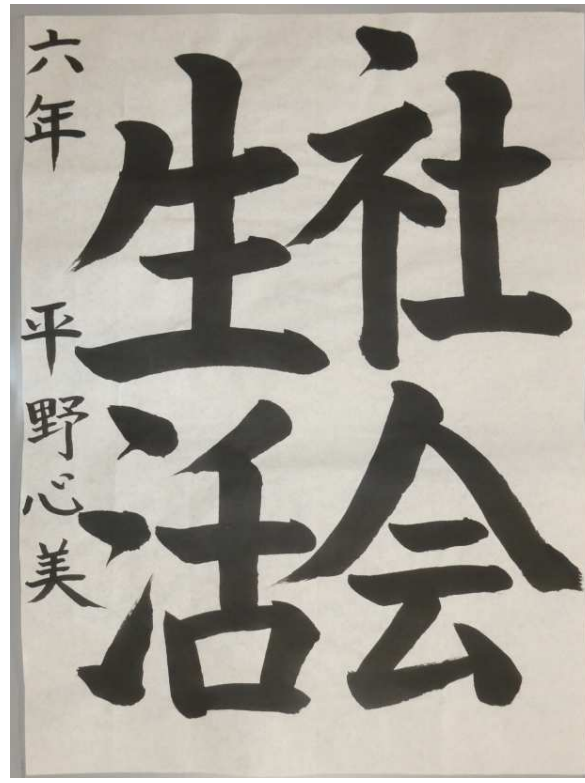 社会
生活
六年 平野心美